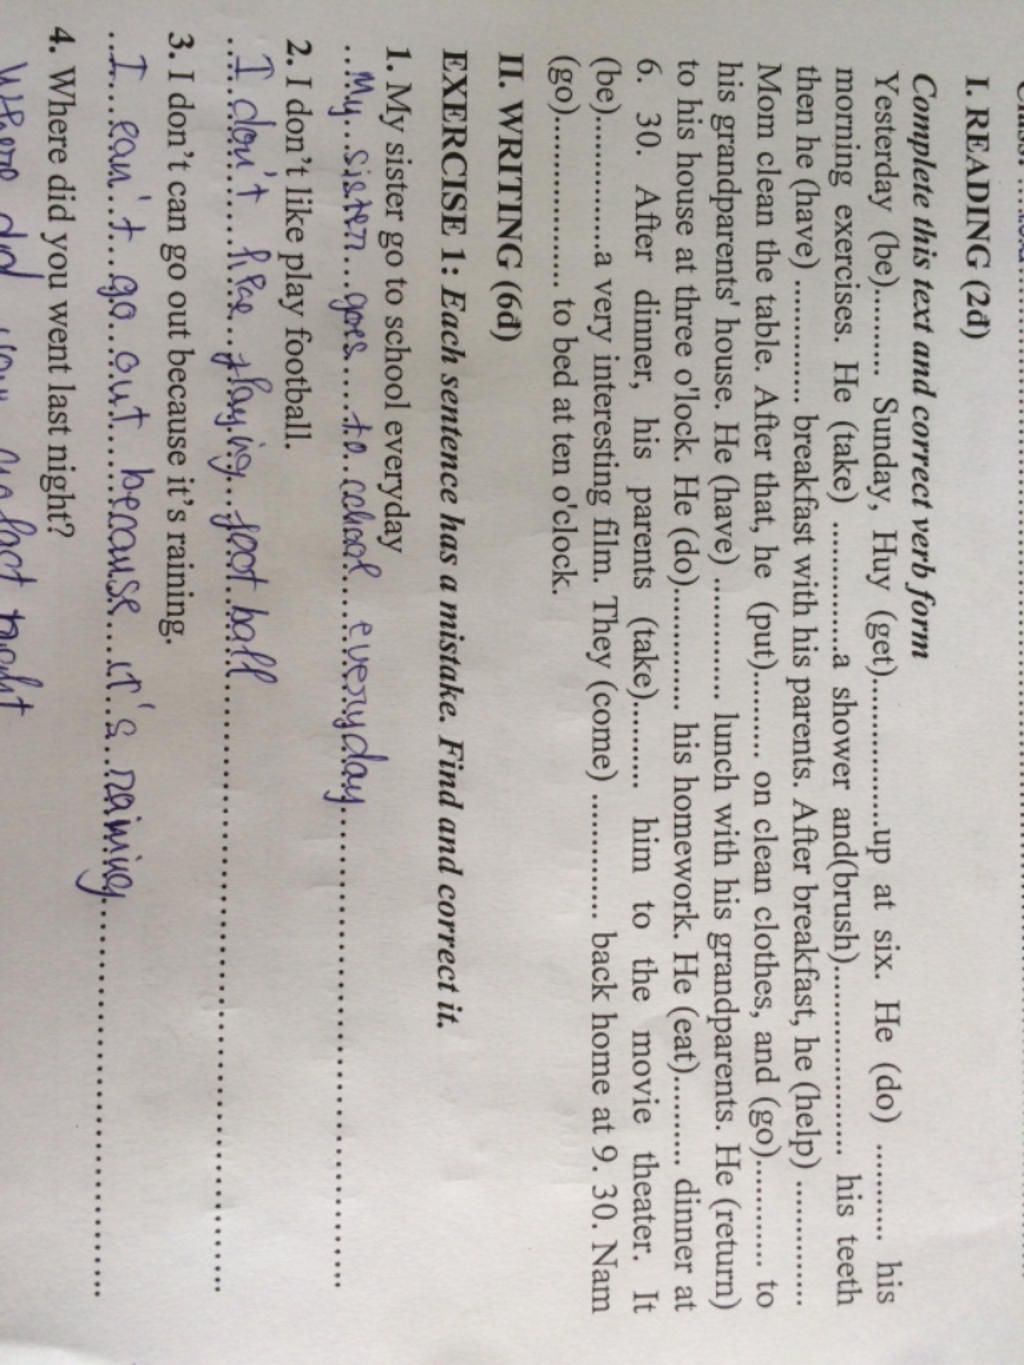 I. READING (2đ)
Complete this text and correct verb form
Yesterday (be)......... Sunday, Huy (get)..................up at six. He (do) ........... his
morning exercises. He (take) ..............a shower and(brush)..................... his teeth
then he (have) ............. breakfast with his parents. After breakfast, he (help) .............
Mom clean the table. After that, he (put)......... on clean clothes, and (go)............ to
his grandparents' house. He (have) ............. lunch with his grandparents. He (return)
to his house at three o'lock. He (do)............. his homework. He (eat).......... dinner at
6. 30. After dinner, his parents (take).......... him to the movie theater. It
(be)...............a very interesting film. They (come) .............. back home at 9. 30. Nam
(go)................... to bed at ten o'clock.
II. WRITING (6đ)
EXERCISE 1: Each sentence has a mistake. Find and correct it.
1. My sister go to school everyday
My sister goes to school everyday
2. I don't like play football.
I don't like playing football
3. I don't can go out because it's raining.
I can't go out because it's raining
4. Where did you went last night?
Where did you go last night